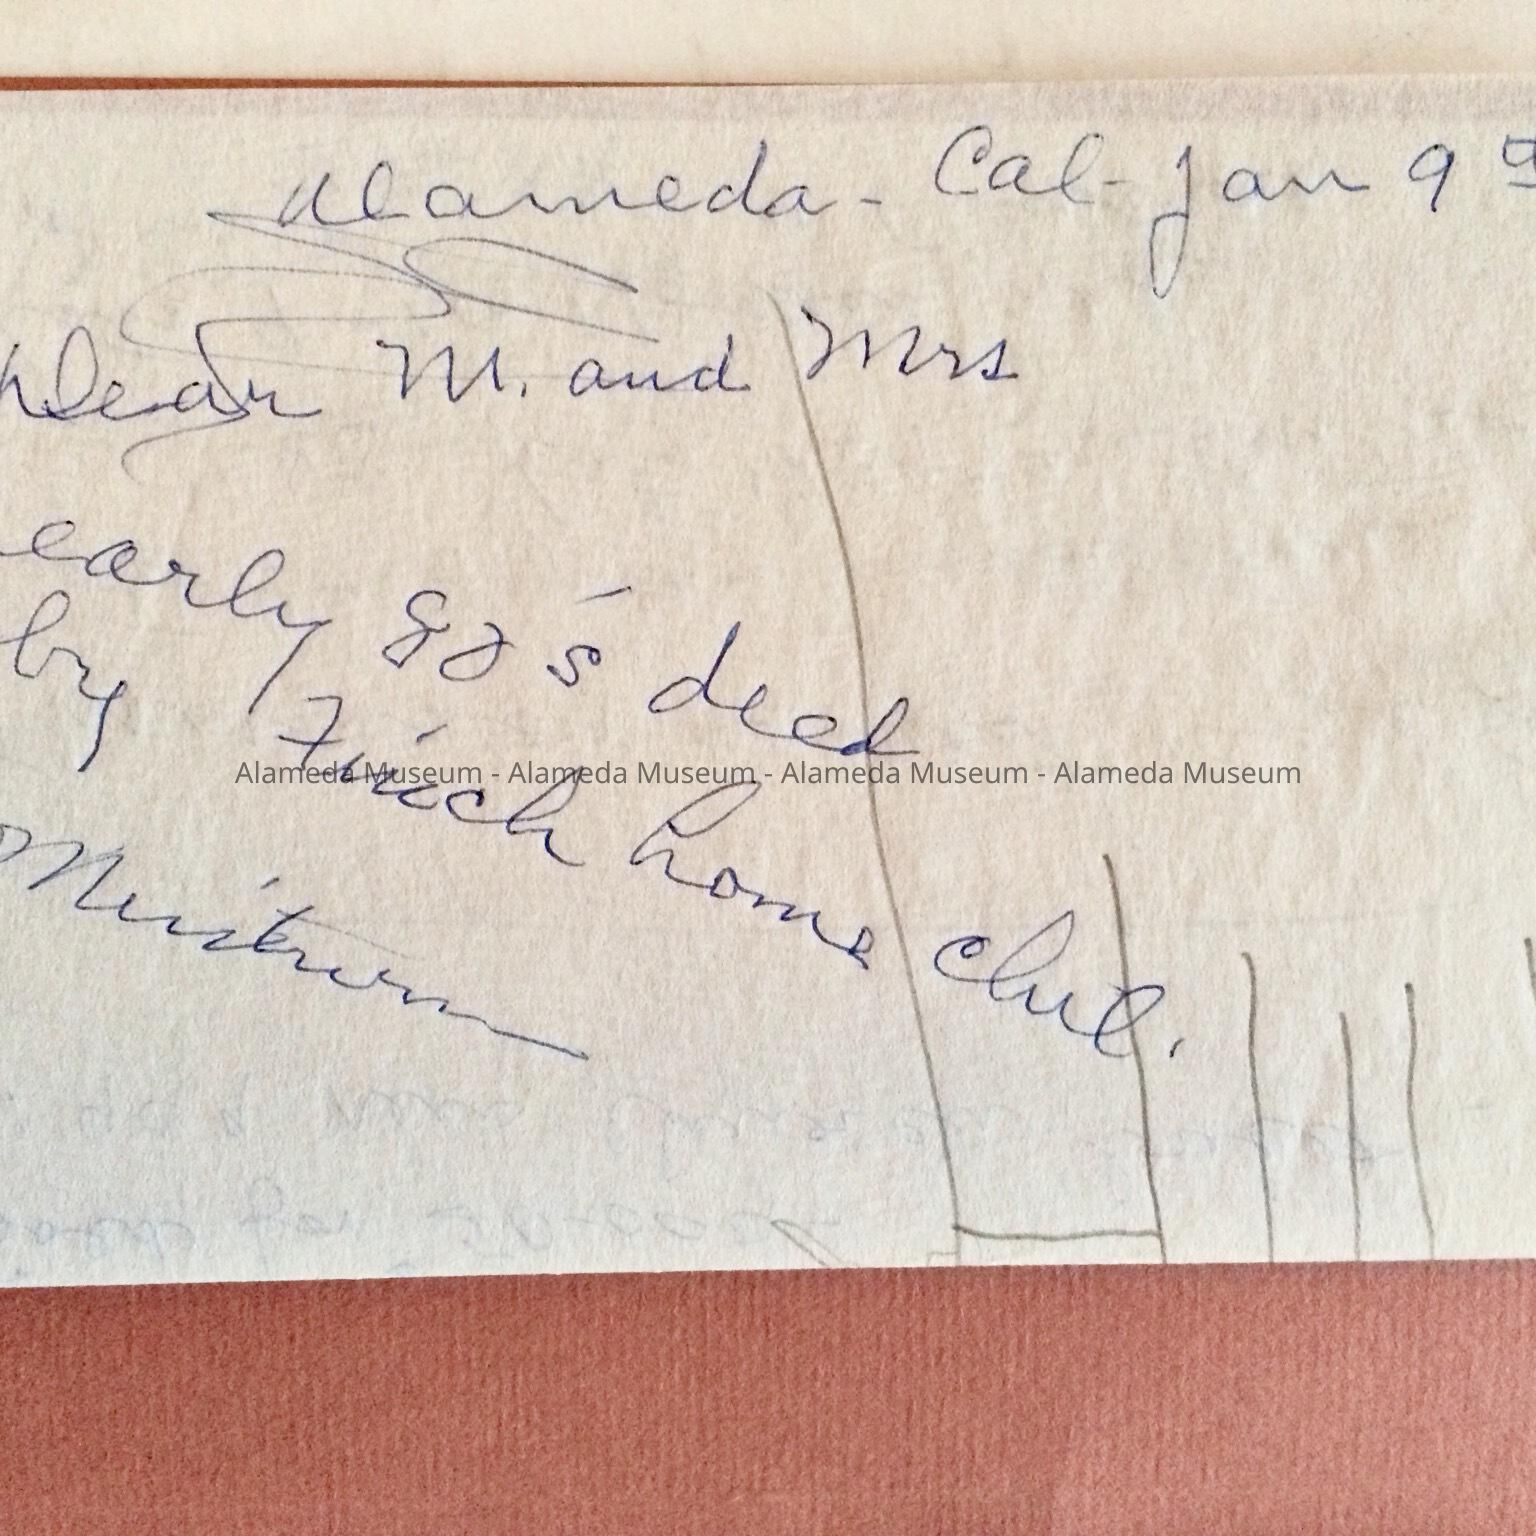 Alameda - Cal - Jan 9
Dear M. and Mrs
early 80's deed
by Finch home
Alameda Museum - Alameda Museum - Alameda Museum - Alameda Museum